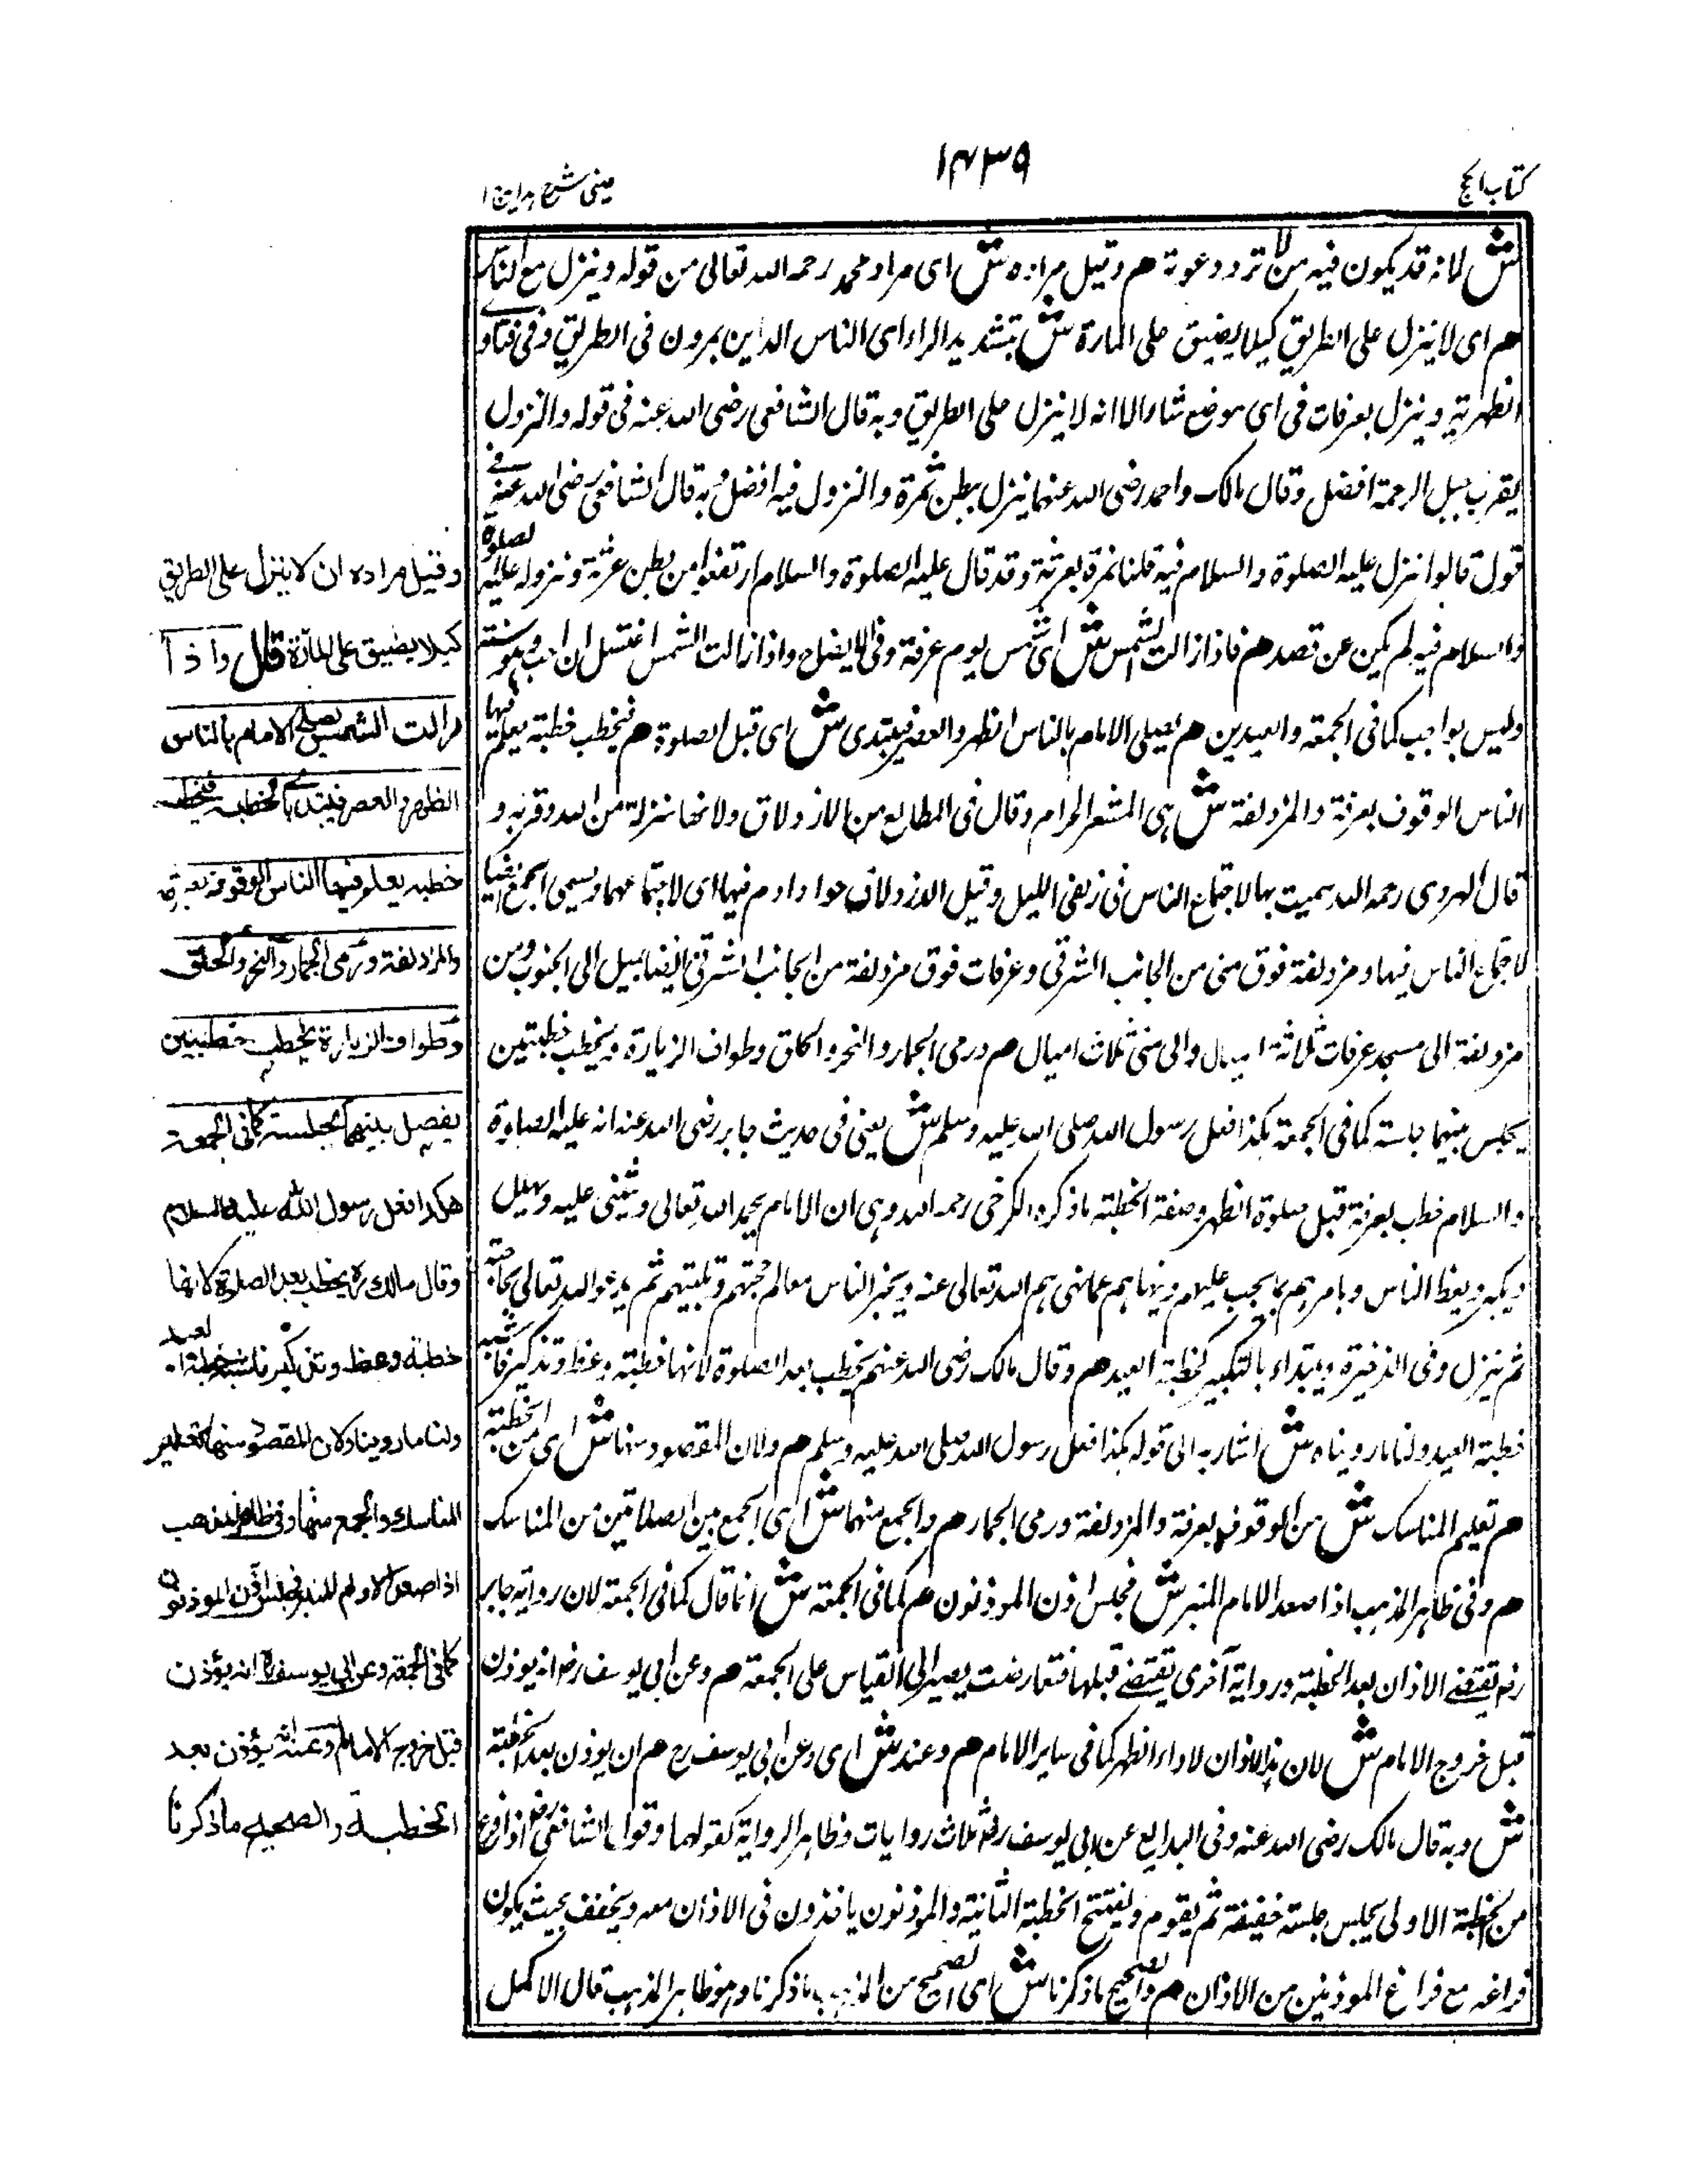 كتاب الحج
١٤٣٩
عيني شرح هداية ١
ش لانه قد يكون فيه من لا ترد دعوته هم وقيل مراده ش اى مراد محمد رحمه الله تعالى من قوله وينزل مع الناس
هم اى لا ينزل على الطريق كيلا يضيق على المارة ش بتشديد الراء اى الناس الذين يمرون فى الطريق وفى فتاوے
الظهيرية وينزل بعرفات فى اى موضع شاء الا انه لا ينزل على الطريق وبه قال الشافعى رضى الله عنه فى قوله والنزول
بقرب جبل الرحمة افضل وقال مالك واحمد رضى الله عنهما ينزل ببطن نمرة والنزول فيه افضل وبه قال الشافعى رضى الله عنه فے
قول قالوا نزل عليه الصلوة والسلام فيه قلنا نمرة بعرفة وقد قال عليه الصلوة والسلام ارتفعوا من بطن عرنة ونزوله عليه الصلوة
والسلام فيه لم يكن عن قصد هم فاذا زالت الشمس ش اى شمس يوم عرفة وفى الايضاح واذا زالت الشمس اغتسل ان احب وهو سنة
وليس بواجب كما فى الجمعة والعيدين هم يصلى الامام بالناس الظهر والعصر فيبتدى ش اى قبل الصلوة هم فيخطب خطبة يعلم فيها
الناس الوقوف بعرفة والمزدلفة ش هى المشعر الحرام وقال فى المطالع من الازدلاف ولانها منزلة من الله وقربة و
قال الهروى رحمه الله سميت بها لاجتماع الناس فى زلفى الليل وقيل الازدلاف حواء وادم فيها اى لاجتماعهما ويسمى الجمع ايضا
لاجتماع الناس فيها ومزدلفة فوق منى من الجانب الشرقى وعرفات فوق مزدلفة من الجانب الشرقى ايضا يميل الى الجنوب ومن
مزدلفة الى مسجد عرفات ثلاثة اميال والى منى ثلاث اميال هم ورمى الجمار والنحر والحلق وطواف الزيارة ويخطب خطبتين
يجلس بينهما جلسة كما فى الجمعة هكذا فعل رسول الله صلى الله عليه وسلم ش يعنى فى حديث جابر رضى الله عنه انه عليه الصلوة
والسلام خطب بعرفة قبل صلوة الظهر وصفة الخطبة ما ذكره الكرخى رحمه الله وهى ان الامام يحمد الله تعالى ويثنى عليه ويهلل
ويكبر ويعظ الناس ويامرهم بما يجب عليهم وينهاهم عما نهى هم الله تعالى عنه ويخبر الناس معالم حجتهم وتلبيتهم ثم يدعو الله تعالى بحاجته
ثم ينزل وفى الذخيرة ويبتداء بالتكبير كخطبة العيد هم وقال مالك رضى الله عنهم يخطب بعد الصلوة لانها خطبة وعظ وتذكير فاشبه
خطبة العيد ولنا ما رويناه ش اشار به الى قوله هكذا فعل رسول الله صلى الله عليه وسلم هم ولان المقصود منها ش اى من الخطبة
هم تعليم المناسك ش من الوقوف بعرفة والمزدلفة ورمى الجمار هم والجمع منها ش اى الجمع بين الصلاتين من المناسك
هم وفى ظاهر المذهب اذا صعد الامام المنبر ش فجلس اذن الموذنون هم كما فى الجمعة ش انما قال كما فى الجمعة لان رواية جابر
رضـ تقتضے الاذان بعد الخطبة ورواية آخرى تقتضے قبلها فتعارضت يصير الى القياس على الجمعة هم وعن ابى يوسف رضـ انه يوذن
قبل خروج الامام ش لان هذا الاذان لاداء الظهر كما فى ساير الايام هم وعنه ش اى وعن ابى يوسف رح هم ان يوذن بعد الخطبة
ش وبه قال مالك رضى الله عنه وفى البدايع عن ابى يوسف رضـ ثلاث روايات وظاهر الرواية كقولهما وقول الشافعى رضـ اذا فرغ
من الخطبة الاولى يجلس جلسة خفيفة ثم يقوم ويفتتح الخطبة الثانية والموذنون ياخذون فى الاذان معه ويخفف بحيث يكون
فراغه مع فراغ الموذنين من الاذان هم والصحيح ما ذكرنا ش اى الصحيح من المذهب ما ذكرنا وهو ظاهر المذهب قال الاكمل
وقيل مراده ان لا ينزل على الطريق
كيلا يضيق على المآرة قال واذا
زالت الشمس يصلي الامام بالناس
الظهر والعصر فيبتدئ بالخطبة فيخطب
خطبة يعلم فيها الناس الوقوف بعرفة
والمزدلفة ورمى الجمار والنحر والحلق
وطواف الزيارة يخطب خطبتين
يفصل بينهما بجلسة كما فى الجمعة
هكذا فعل رسول الله عليه السلام
وقال مالك رح يخطب بعد الصلوة لانها
خطبة وعظ وتذكير فاشبه خطبة العيد
ولنا ما روينا ولان المقصود منها تعليم
المناسك والجمع منها وفى ظاهر المذهب
اذا صعد الامام المنبر فجلس اذن الموذنون
كما فى الجمعة وعن ابى يوسف رح انه يؤذن
قبل خروج الامام وعنه انه يؤذن بعد
الخطبة والصحيح ما ذكرنا